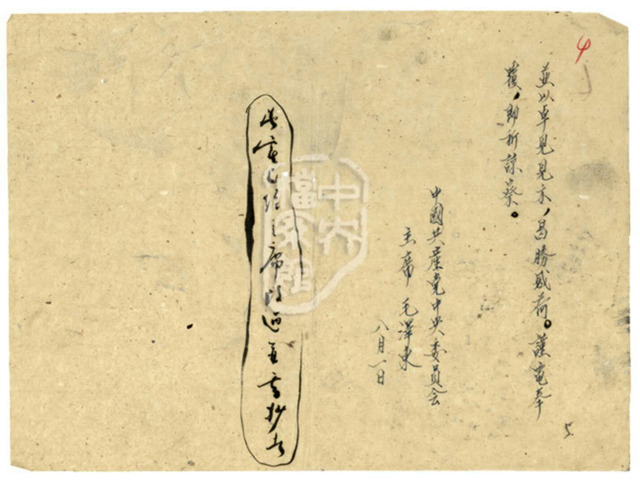 並以卓見見示,曷勝感荷。謹電奉
覆,即祈諒察。
中國共產党中央委員会
主席 毛澤東
八月一日
此電已經主席改過
中央
檔案館